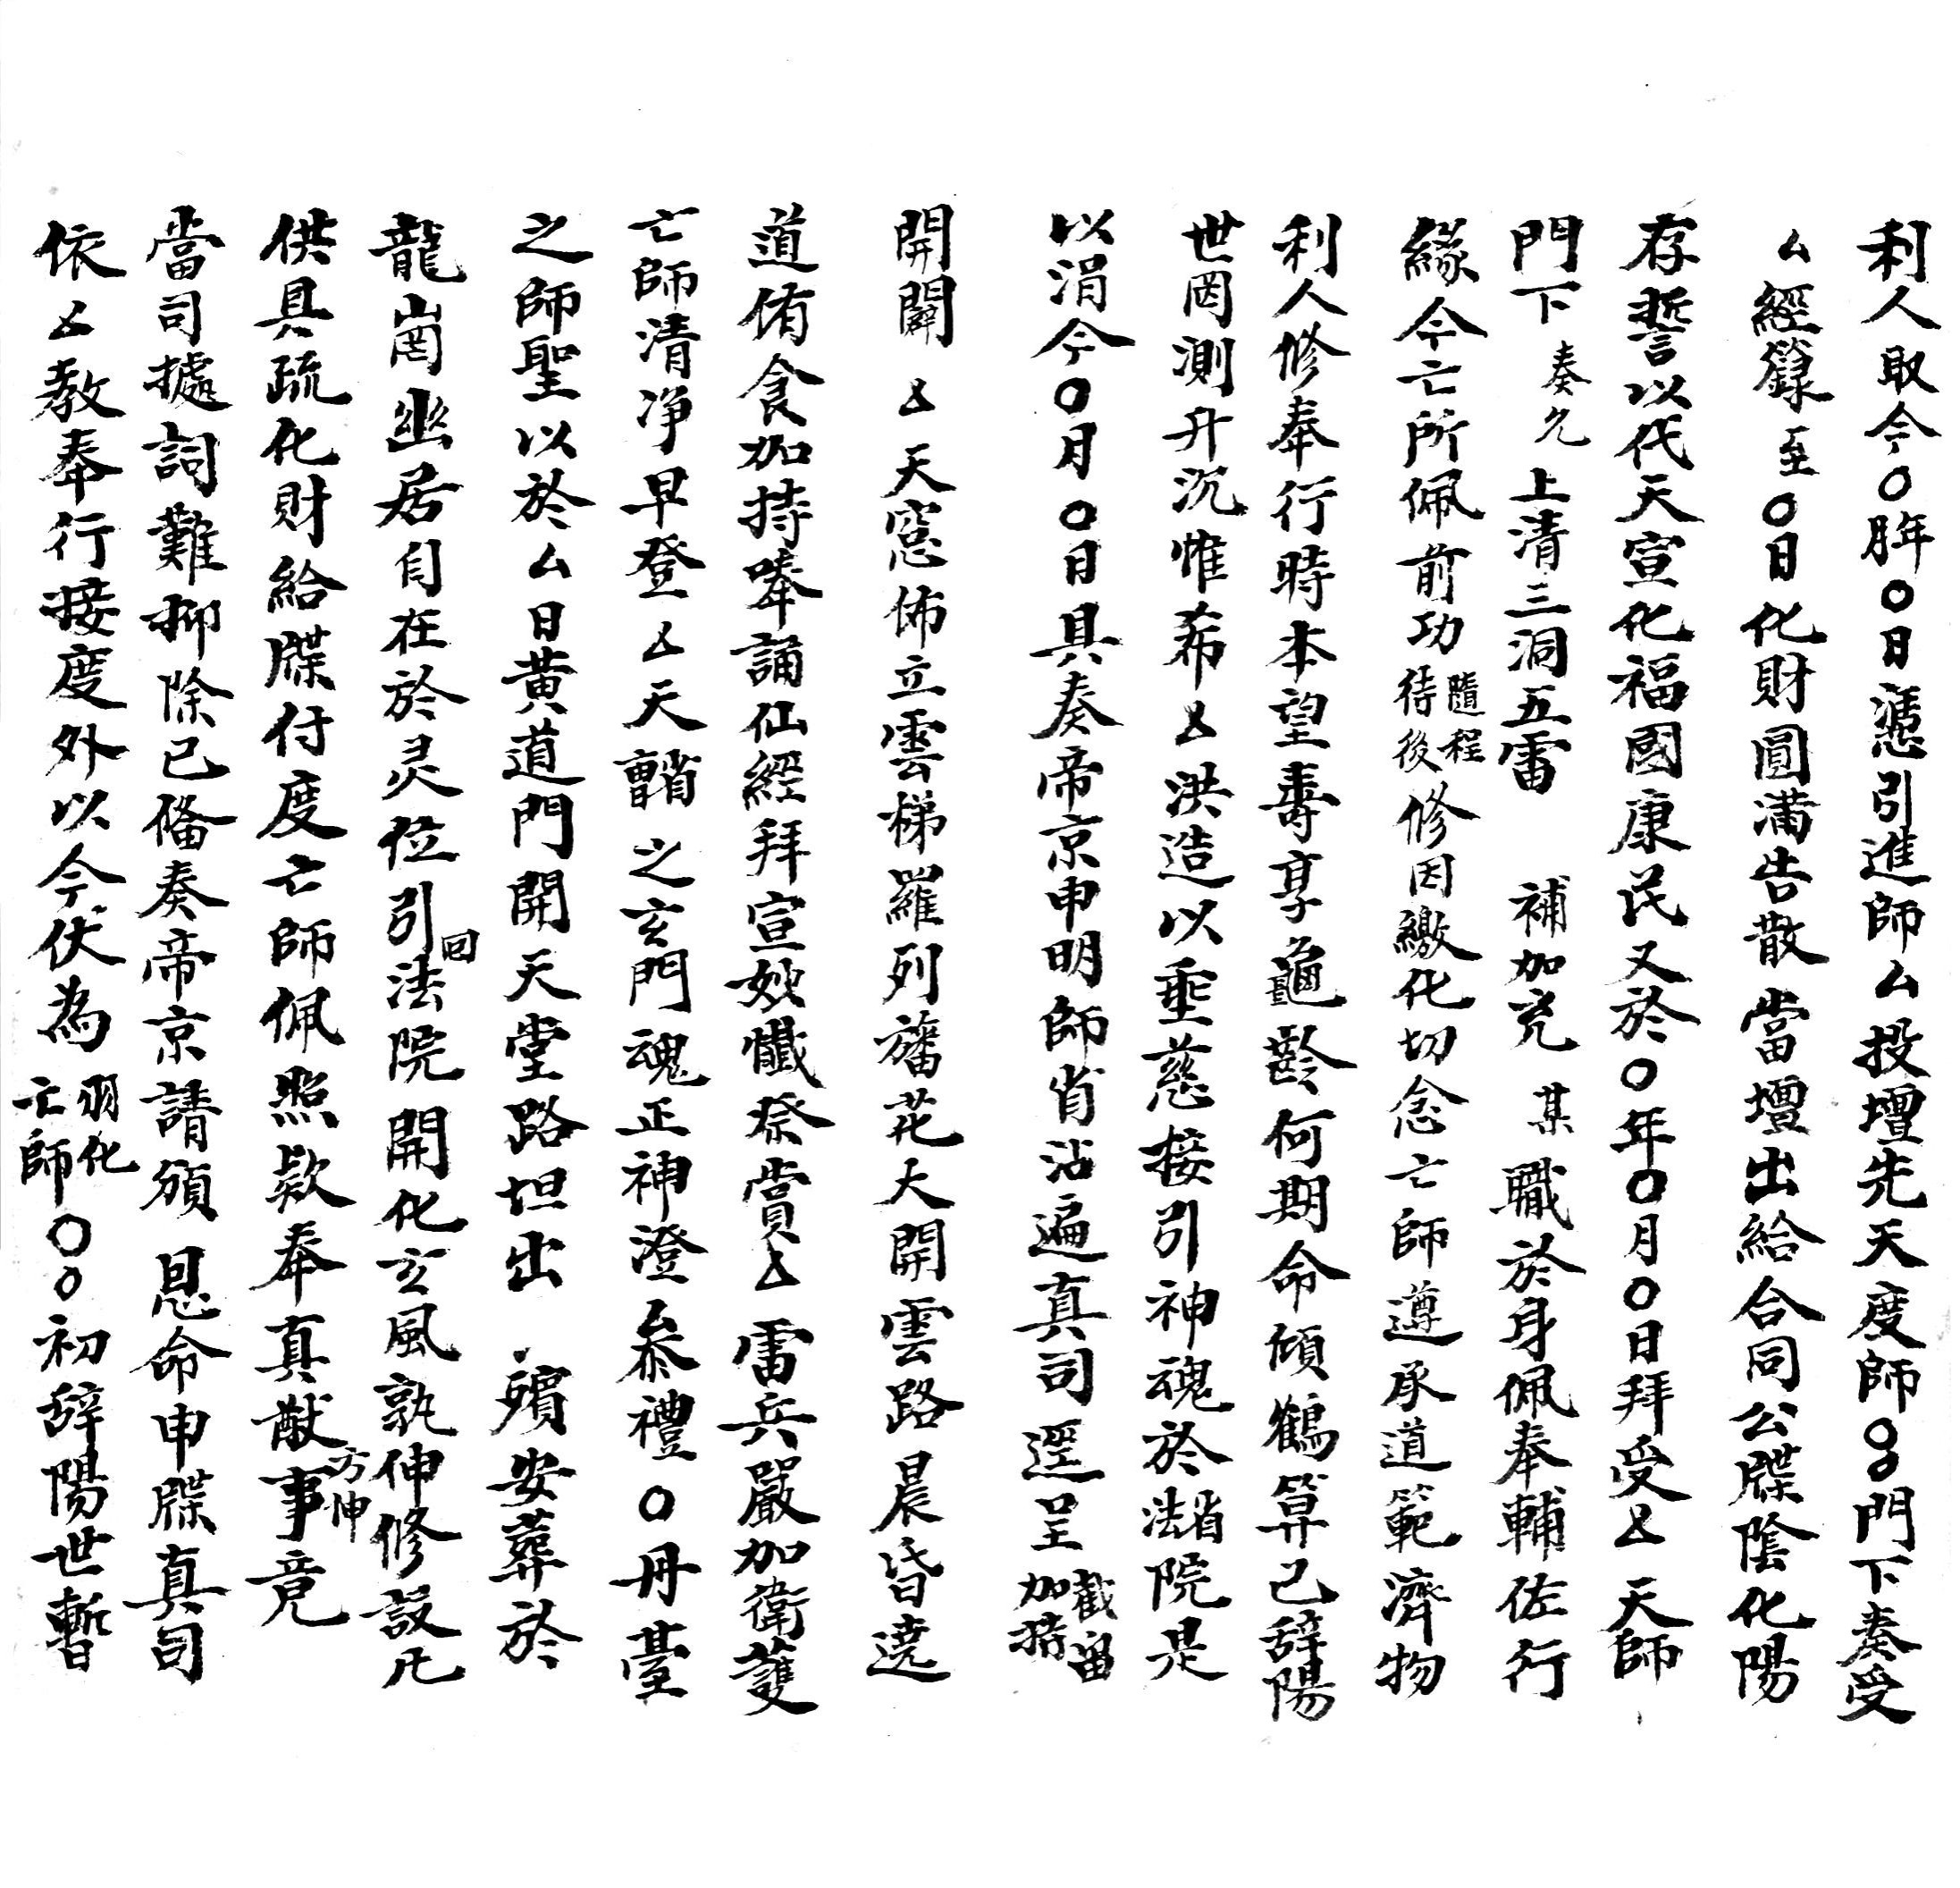 利人取今〇年〇日憑引進師厶投壇先天度師〇〇門下奏受
厶經籙至〇日化財圓滿告散當壇出給合同公牒陰化陽
存誓以代天宣化福國康民又於〇年〇月〇日拜受厶天師
門下奏允上清三洞五雷補加充某職於身佩奉輔佐行
緣今亡所佩前功隨程待後修因繳化切念亡師遵承道範濟物
利人修奉行時本望壽享龜齡何期命傾鶴算已辞陽
世罔測升沉惟希厶洪造以垂慈接引神魂於法省院是
以涓今〇月〇日具奏帝京申明師省沾遍真司逕呈截留加持
開闢厶天窓佈立雲梯羅列旛花大開雲路晨昏遶
道侑食加持奉誦仙經拜宣妙懺祭賞厶雷兵嚴加衛護
亡師清净早登厶天之玄門魂正神澄叅禮〇丹臺
之師聖以於厶日黄道門開天堂路坦出殯安葬於
龍崗幽居自在於灵位引回法院開化玄風孰伸修設凡
供具疏化財給牒付度亡師佩照欵奉真猷事方伸竟
當司據詞難抑除已俻奏帝京請頒恩命申牒真司
依厶教奉行接度外以今伏為羽化亡師〇〇初辞陽世暫